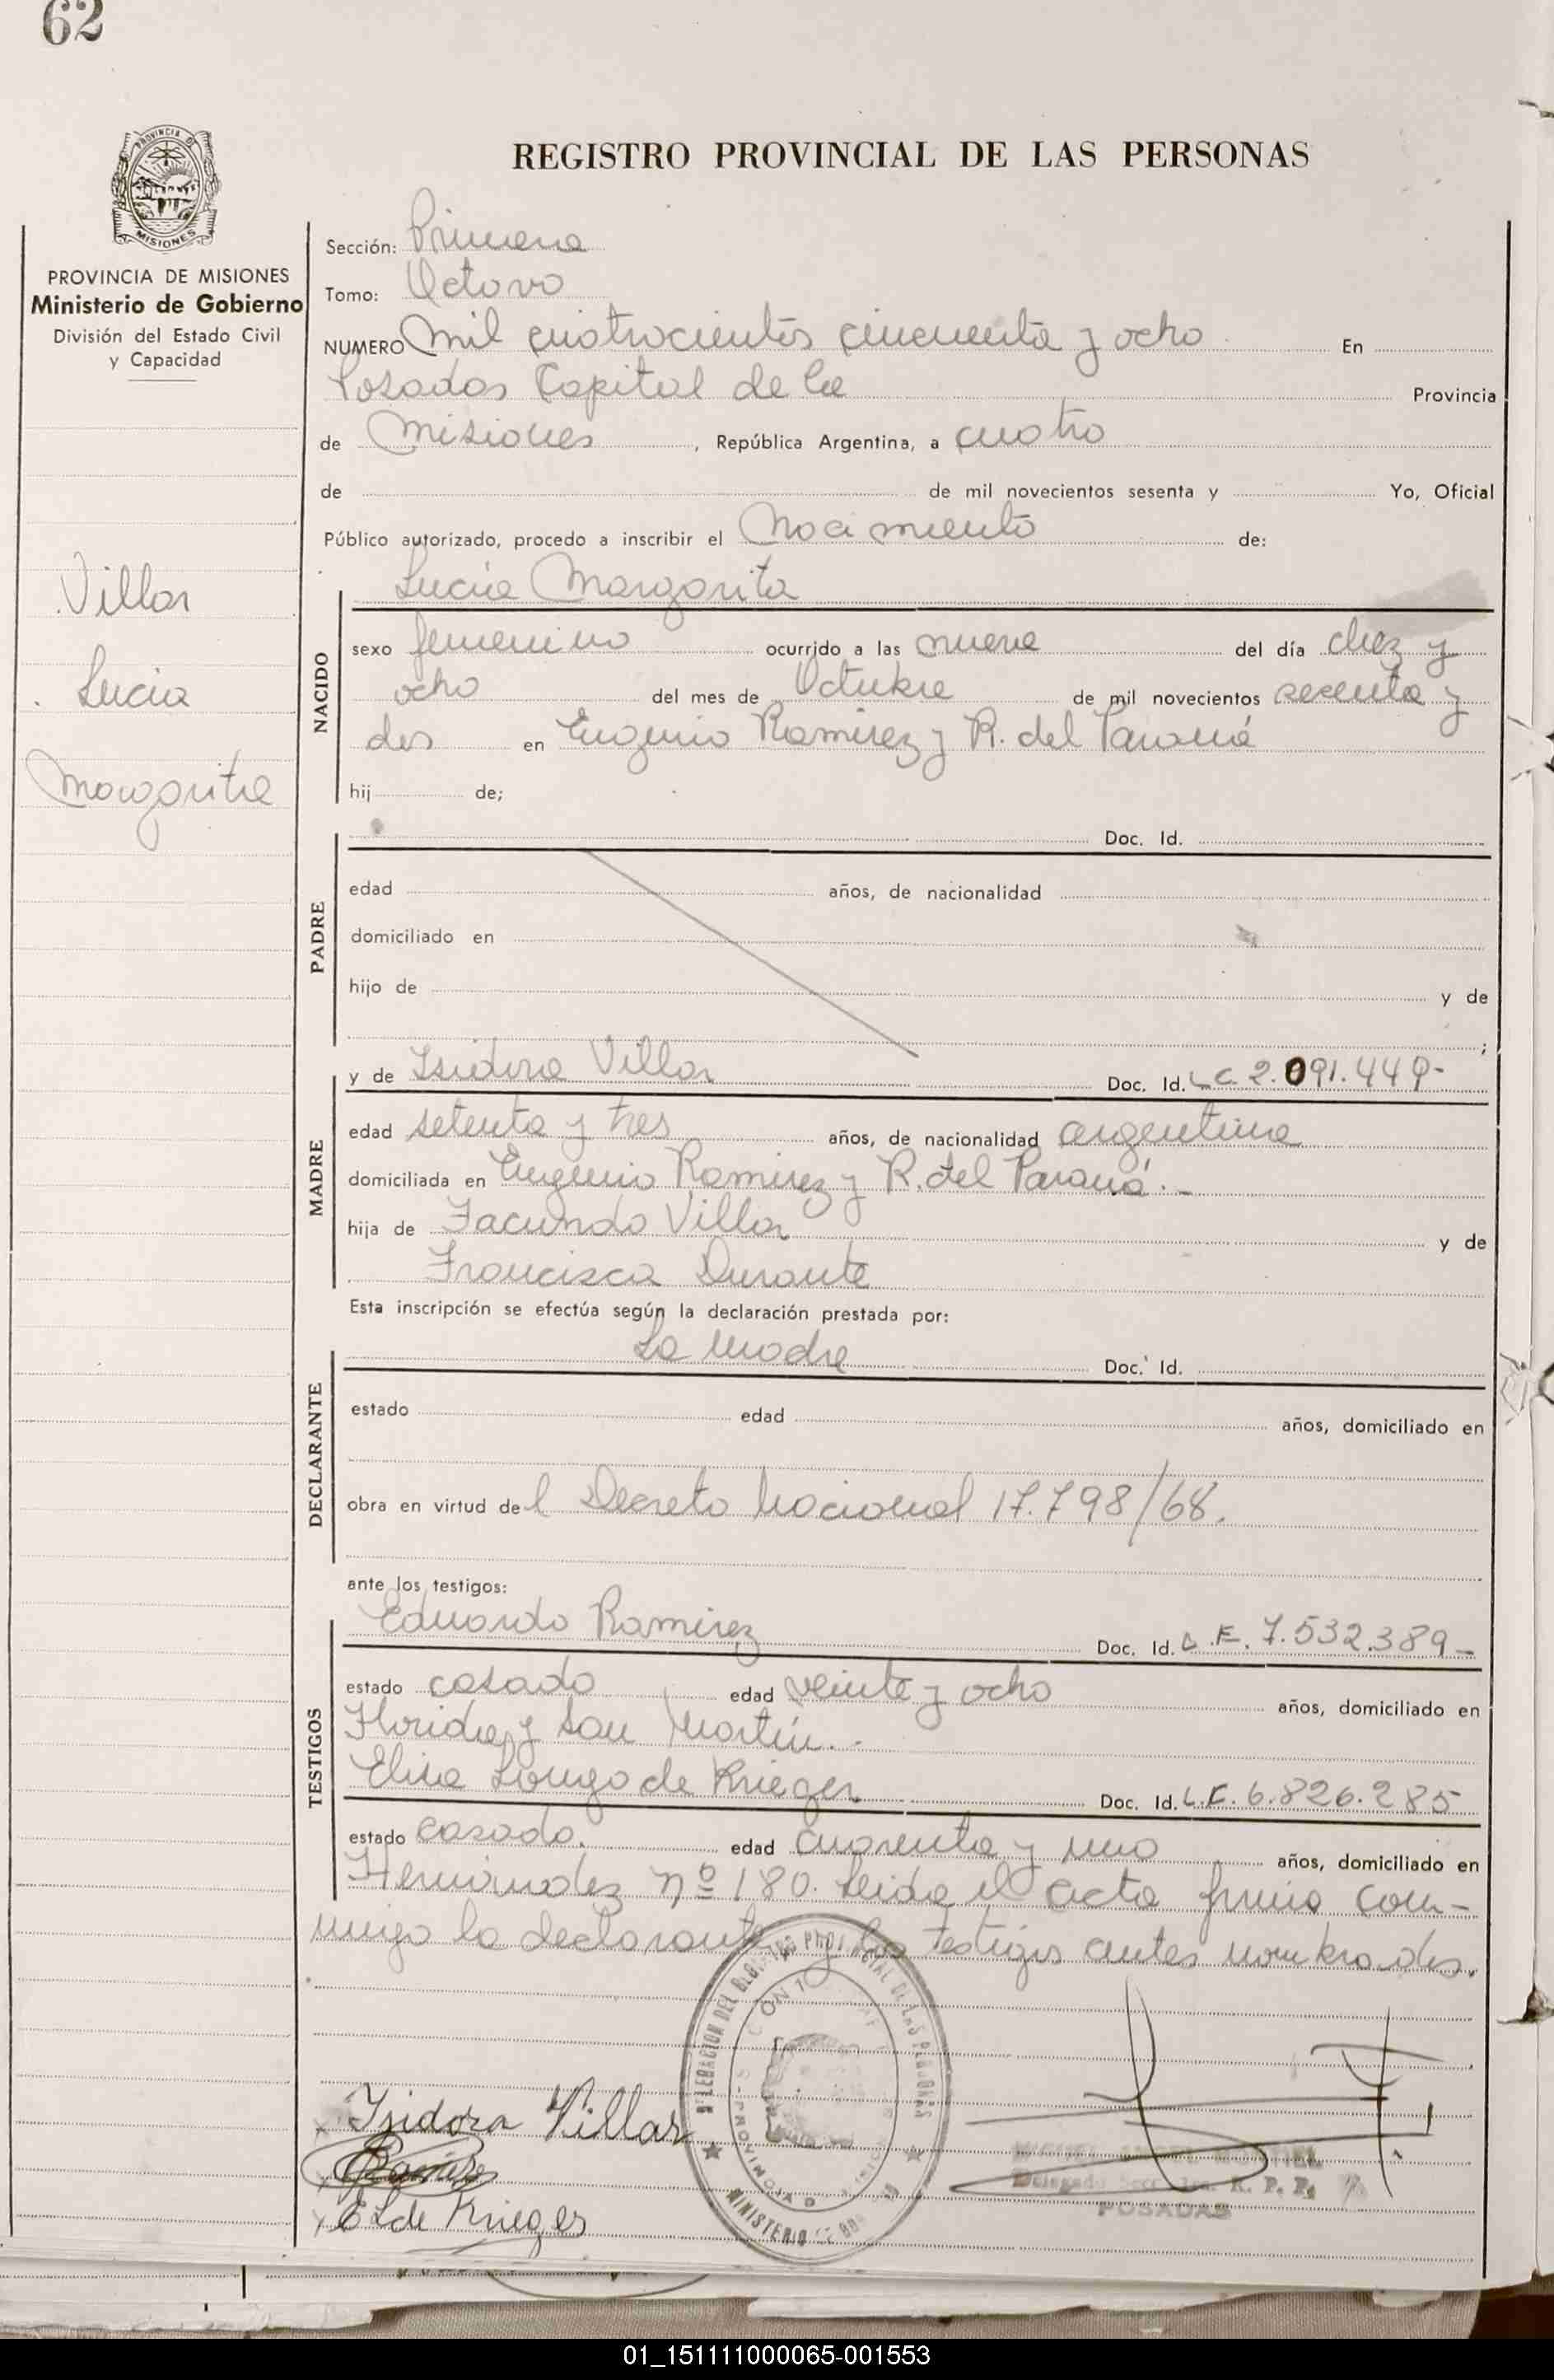 62
REGISTRO PROVINCIAL DE LAS PERSONAS
PROVINCIA DE MISIONES
Ministerio de Gobierno
División del Estado Civil
y Capacidad
Villar
Lucia
Margarita
Sección: Primera
Tomo: Octavo
NUMERO Mil cuatrocientos cincuenta y ocho En
Posadas Capital de la Provincia
de Misiones, República Argentina, a cuatro
de de mil novecientos sesenta y Yo, Oficial
Público autorizado, procedo a inscribir el Nacimiento de:
NACIDO
Lucía Margarita
sexo femenino ocurrido a las nueve del día diez y
ocho del mes de Octubre de mil novecientos sesenta y
dos en Eugenio Ramirez y R. del Paraná
hij de;
PADRE
Doc. Id.
edad años, de nacionalidad
domiciliado en
hijo de y de
;
MADRE
y de Isidora Villar Doc. Id. L.C. 2.091.449-
edad setenta y tres años, de nacionalidad argentina
domiciliada en Eugenio Ramirez y R. del Paraná.-
hija de Facundo Villar y de
Francisca Durante
Esta inscripción se efectúa según la declaración prestada por:
DECLARANTE
La madre Doc. Id.
estado edad años, domiciliado en
obra en virtud del Decreto Nacional 17.798/68.
ante los testigos:
TESTIGOS
Eduardo Ramirez Doc. Id. L.E. 7.532.389-
estado casado edad veinte y ocho años, domiciliado en
Florida y San Martín.-
Elisa Longo de Krieger Doc. Id. L.E. 6.826.285
estado casada. edad cuarenta y uno años, domiciliado en
Hernández nº 180. Leída el acta firma con-
migo la declarante y los testigos antes nombrados.
Isidora Villar
Ramirez
E L de Krieger
MINISTERIO DE
POSADAS
01_151111000065-001553